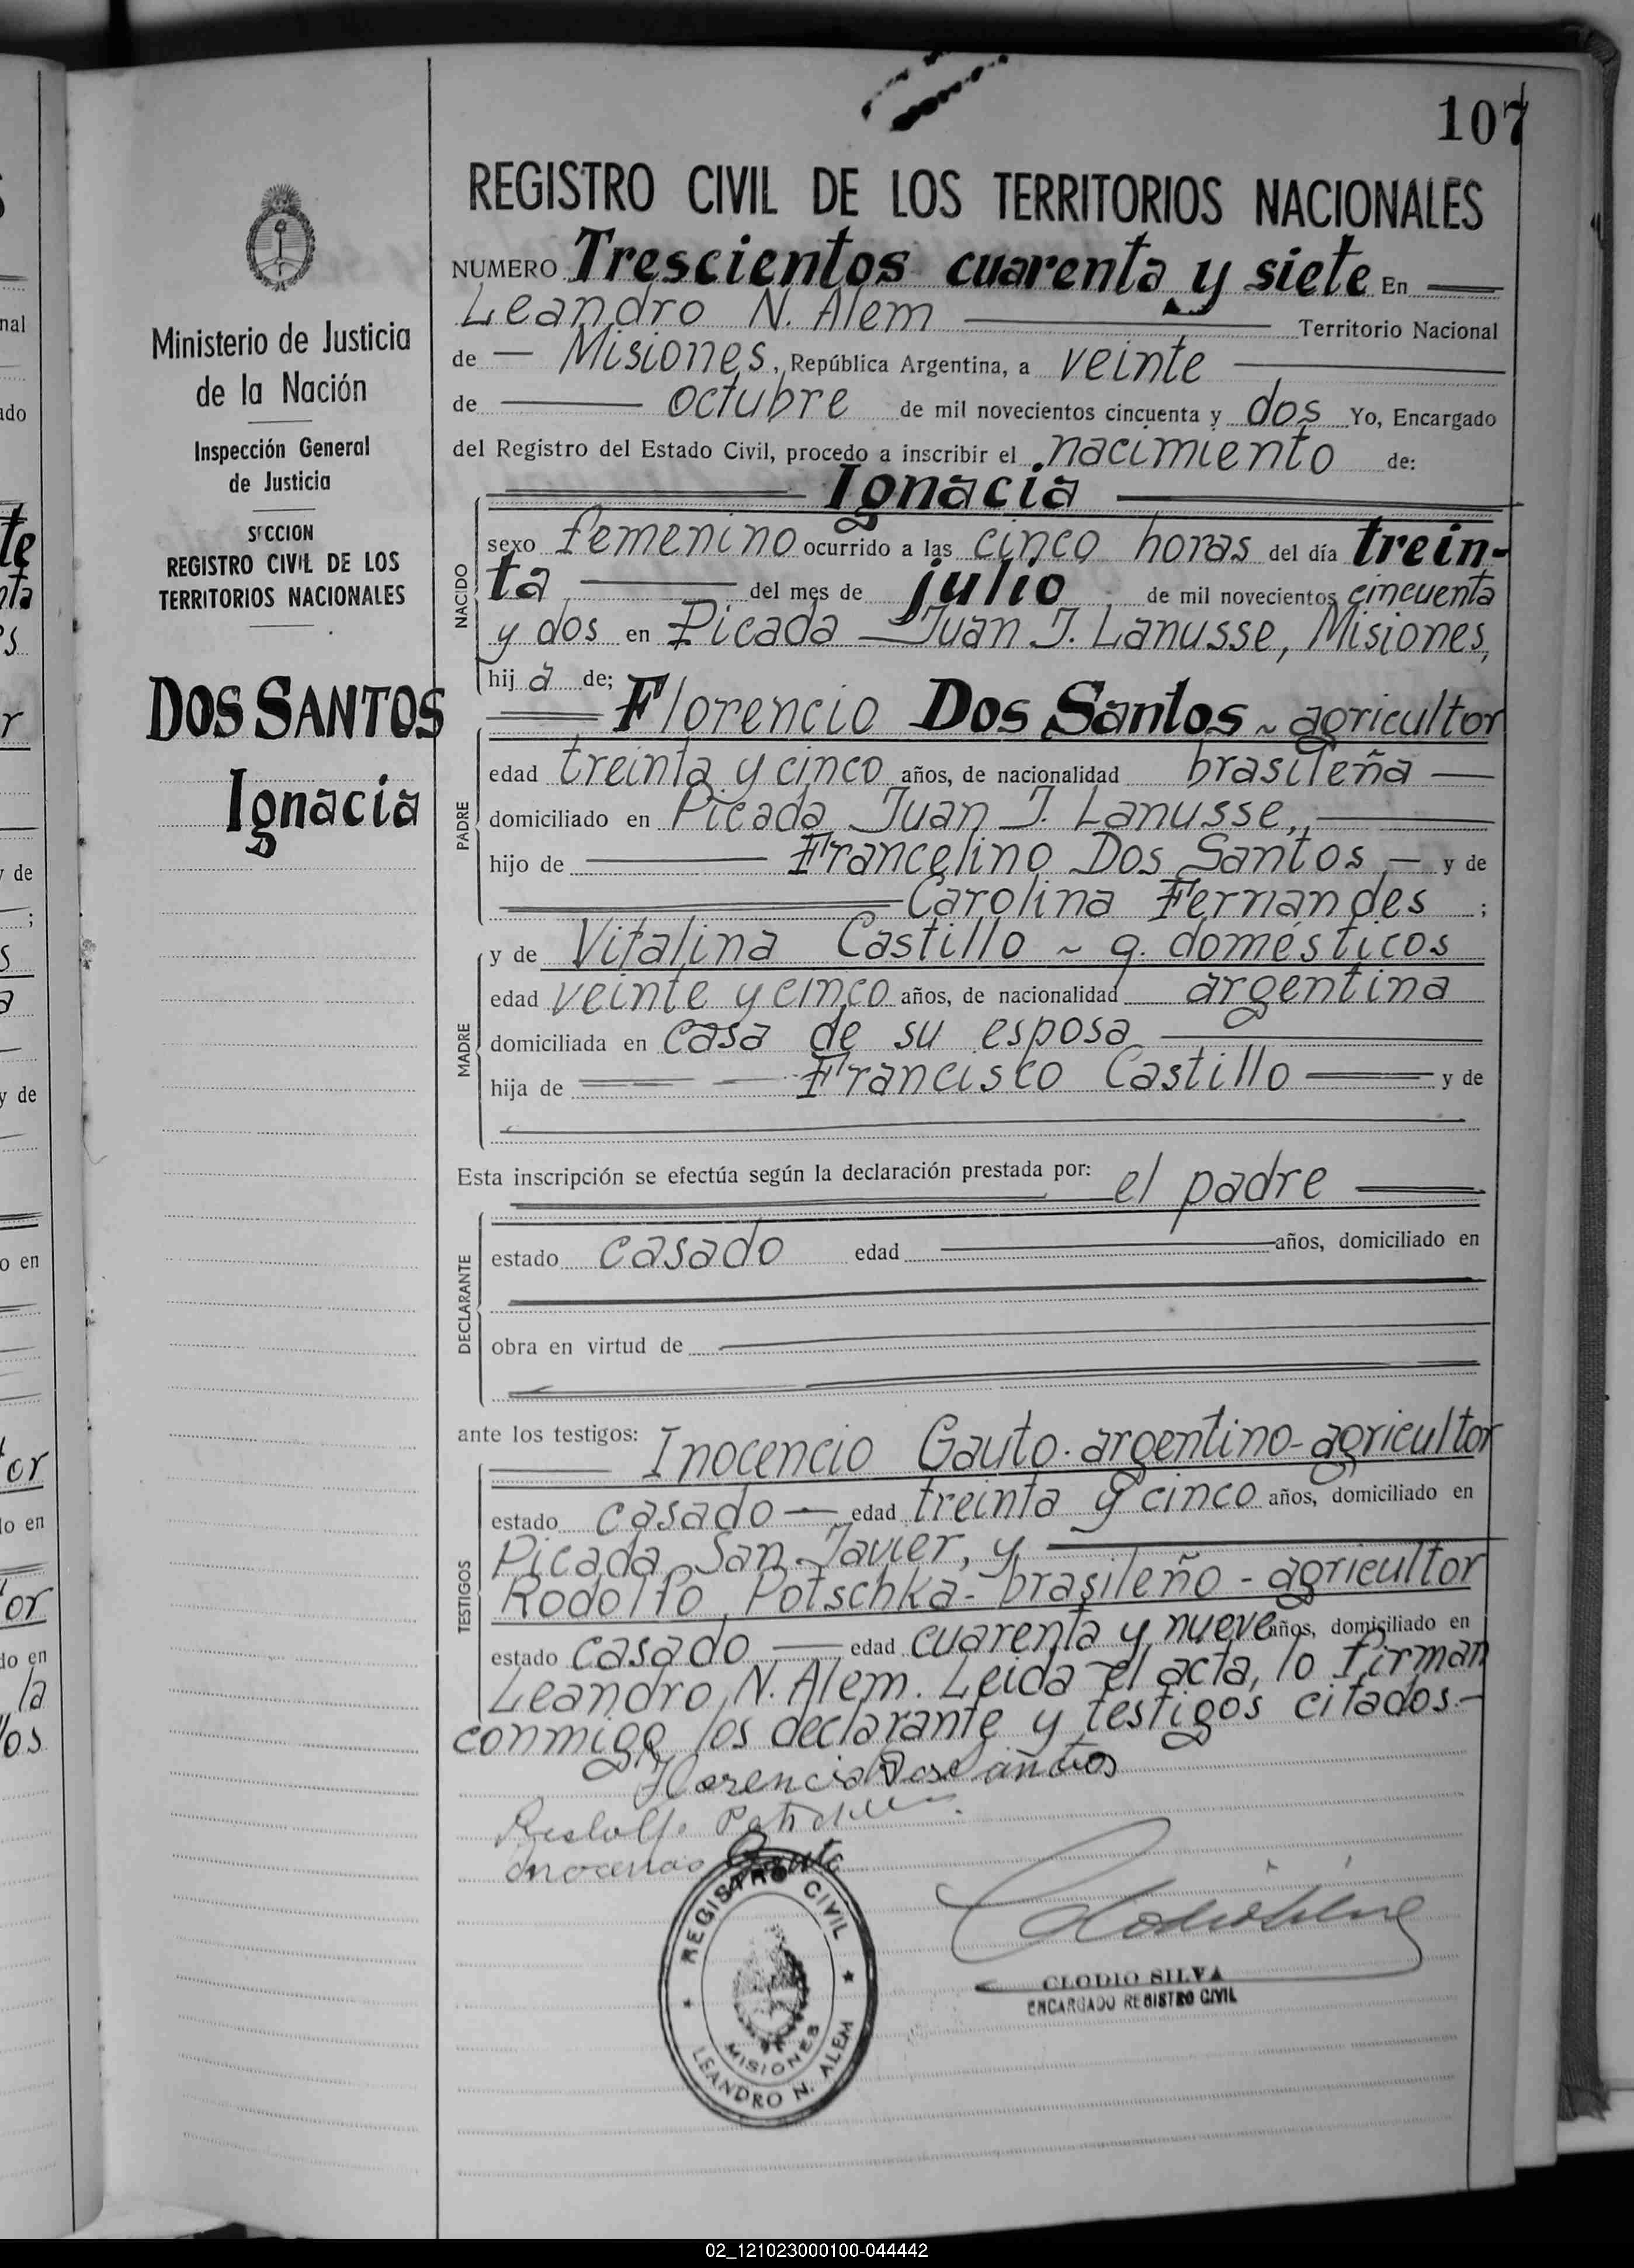 107
REGISTRO CIVIL DE LOS TERRITORIOS NACIONALES
NUMERO Trescientos cuarenta y siete En
Leandro N. Alem Territorio Nacional
de Misiones, República Argentina, a veinte
de octubre de mil novecientos cincuenta y dos Yo, Encargado
del Registro del Estado Civil, procedo a inscribir el nacimiento de:
Ignacia
NACIDO
sexo femenino ocurrido a las cinco horas del día trein-
ta del mes de julio de mil novecientos cincuenta
y dos en Picada Juan J. Lanusse, Misiones,
hij a de;
Florencio Dos Santos ~ agricultor
PADRE
edad treinta y cinco años, de nacionalidad brasileña
domiciliado en Picada Juan J. Lanusse,
hijo de Francelino Dos Santos y de
Carolina Fernandes ;
MADRE
y de Vitalina Castillo ~ q. domésticos
edad veinte y cinco años, de nacionalidad argentina
domiciliada en casa de su esposa
hija de Francisco Castillo y de
Esta inscripción se efectúa según la declaración prestada por: el padre
DECLARANTE
estado casado edad años, domiciliado en
obra en virtud de
ante los testigos: Inocencio Gauto. argentino-agricultor
TESTIGOS
estado casado edad treinta y cinco años, domiciliado en
Picada San Javier, y
Rodolfo Potschka- brasileño - agricultor
estado casado edad cuarenta y nueve años, domiciliado en
Leandro N. Alem. Leida el acta, lo firman
conmigo los declarante y testigos citados.-
Florencio Dos Santos
Inocencio Gauto
REGISTRO CIVIL
MISIONES
LEANDRO N. ALEM
CLODIO SILVA
ENCARGADO REGISTRO CIVIL
Ministerio de Justicia
de la Nación
Inspección General
de Justicia
SECCION
REGISTRO CIVIL DE LOS
TERRITORIOS NACIONALES
DOS SANTOS
Ignacia
02_121023000100-044442